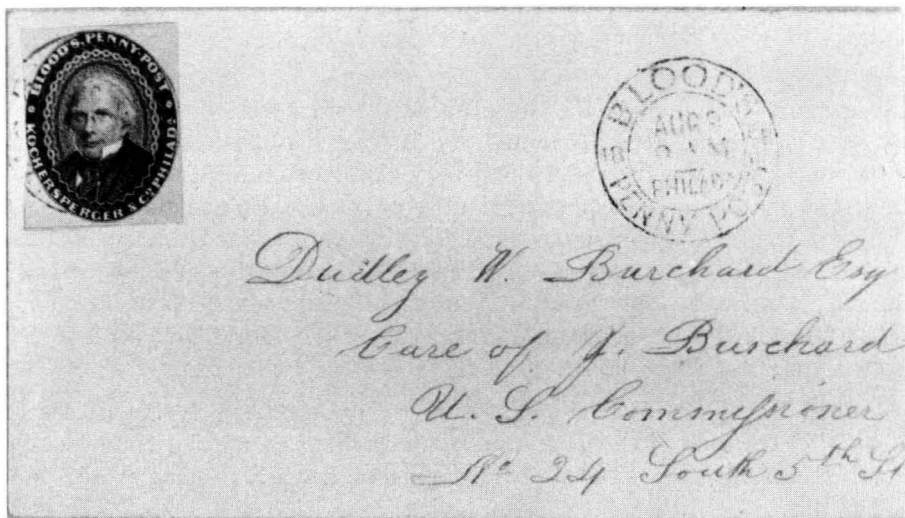 BLOOD'S. PENNY. POST
KOCHERSPERGER & Co. PHILADa.
BLOOD'S
PENNY POST
AUG
PHILADa
Dudley W. Burchard Esq
Care of J. Burchard
U. S. Commissioner
No 24 South 5th St